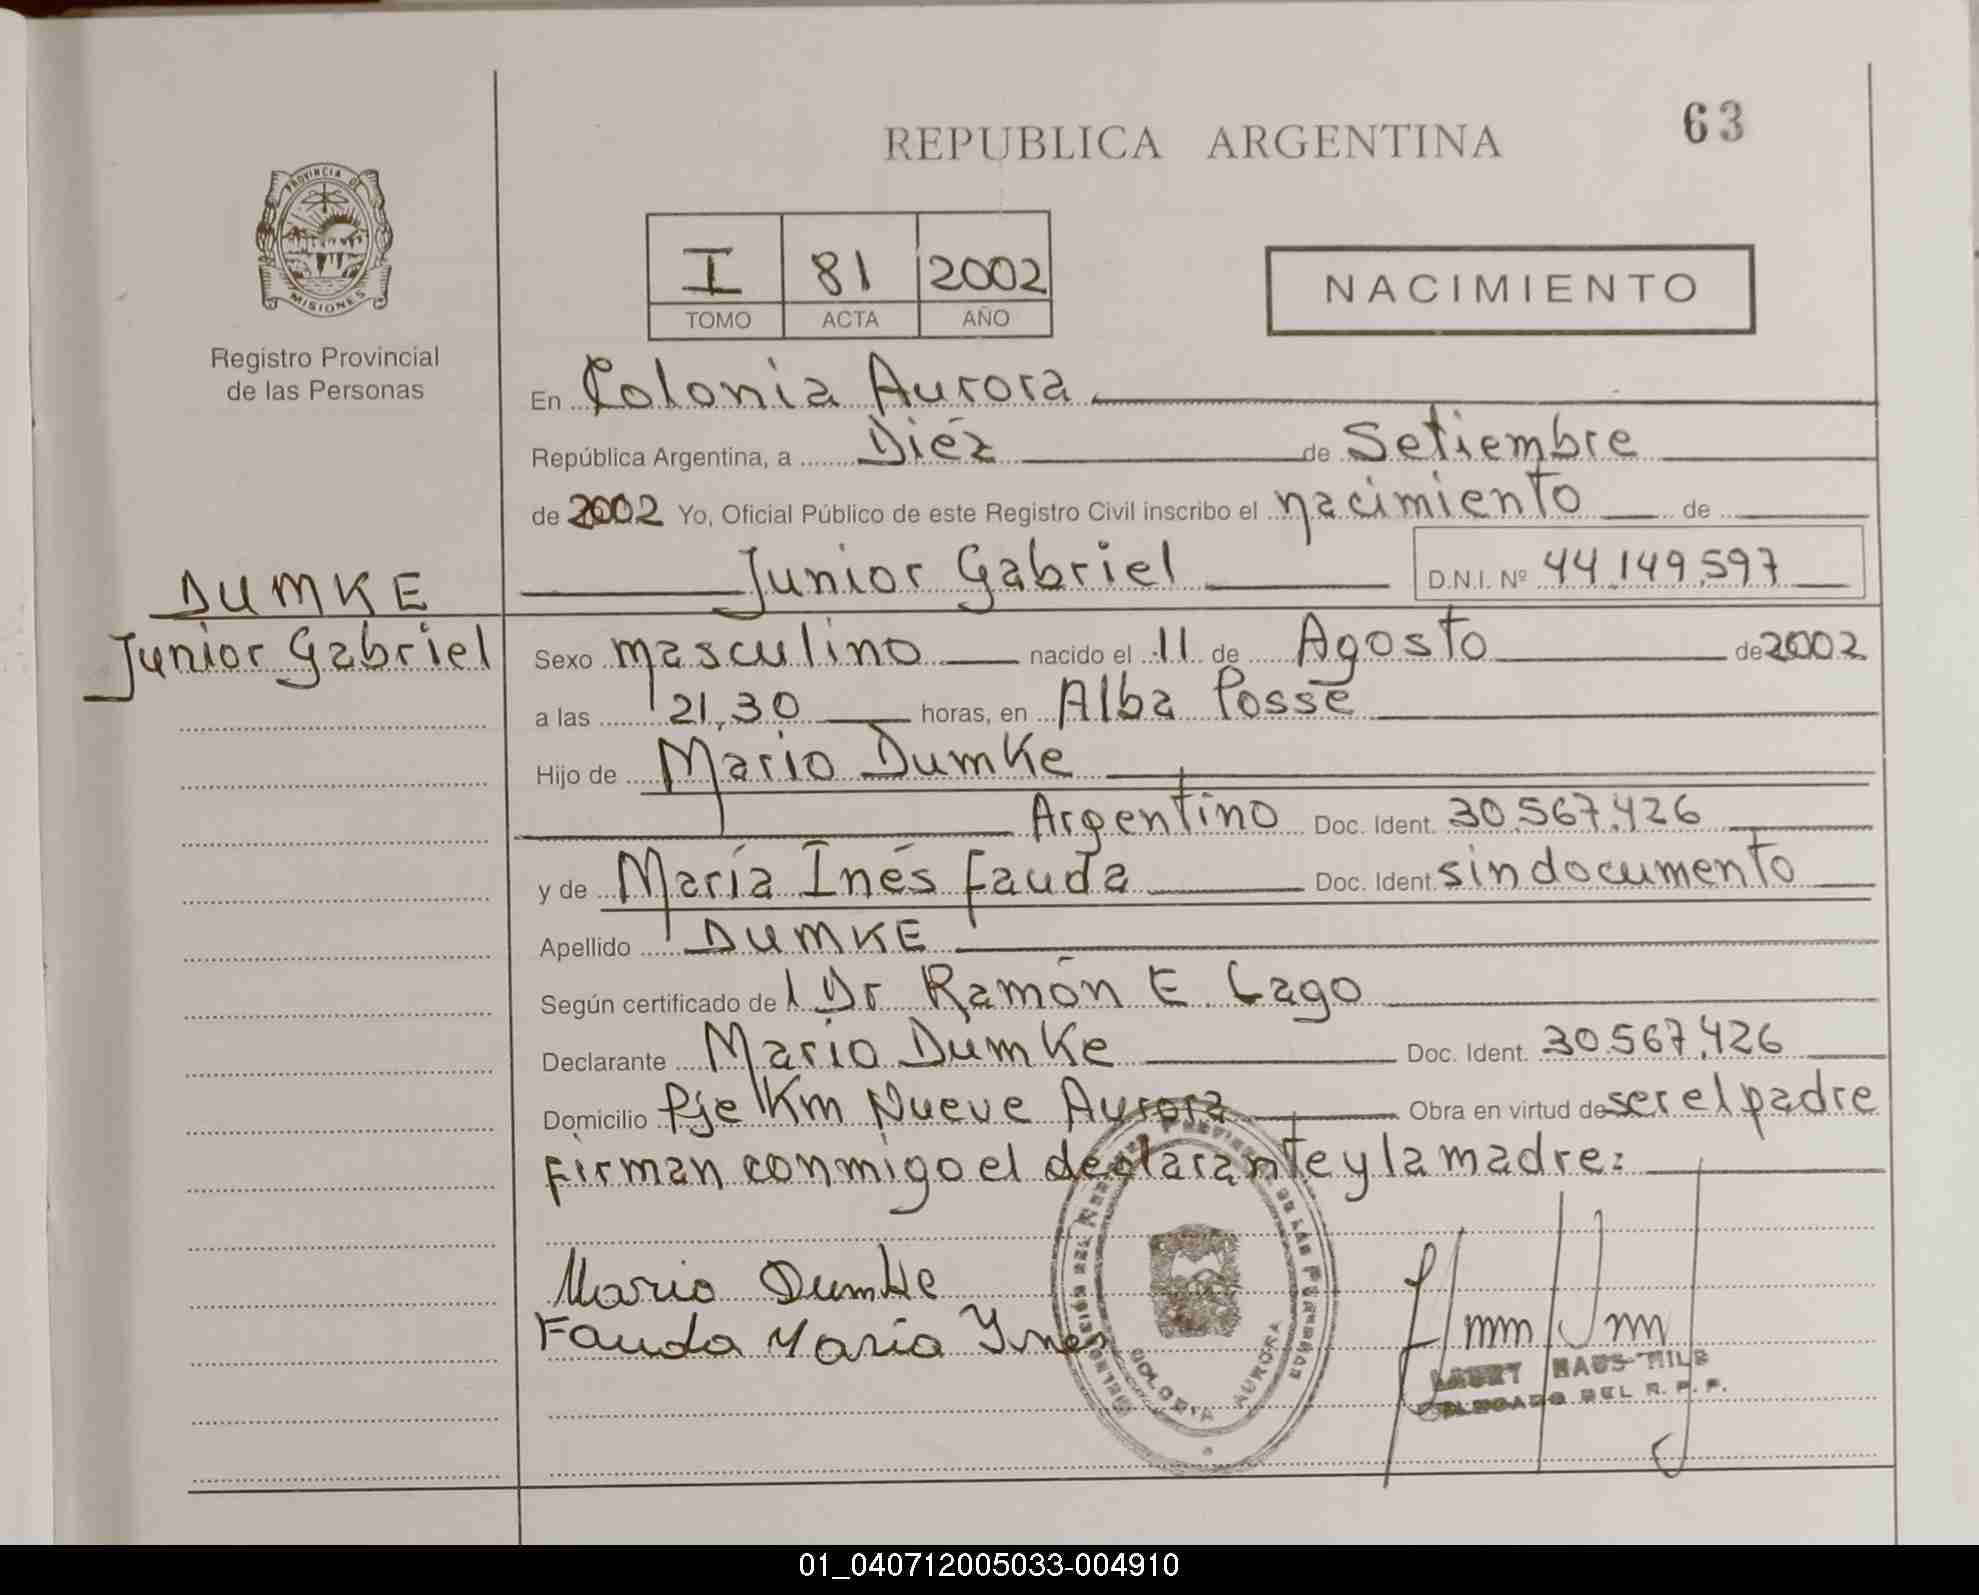 63
REPUBLICA ARGENTINA
PROVINCIA DE
MISIONES
Registro Provincial
de las Personas
I 81 2002
TOMO ACTA AÑO
NACIMIENTO
En Colonia Aurora
República Argentina, a Diez de Setiembre
de 2002 Yo, Oficial Público de este Registro Civil inscribo el nacimiento de
Junior Gabriel D.N.I. Nº 44.149.597
DUMKE
Junior Gabriel
Sexo masculino nacido el 11 de Agosto de 2002
a las 21,30 horas, en Alba Posse
Hijo de Mario Dumke
Argentino Doc. Ident. 30.567.426
y de María Inés Fauda Doc. Ident. sin documento
Apellido DUMKE
Según certificado de l Dr Ramón E. Lago
Declarante Mario Dumke Doc. Ident. 30.567.426
Domicilio Pje Km Nueve Aurora Obra en virtud de ser el padre
firman conmigo el declarante y la madre:
Mario Dumke
Fauda Maria Ynes
COLONIA AURORA
DELEGADO DEL R. P. P.
01_040712005033-004910